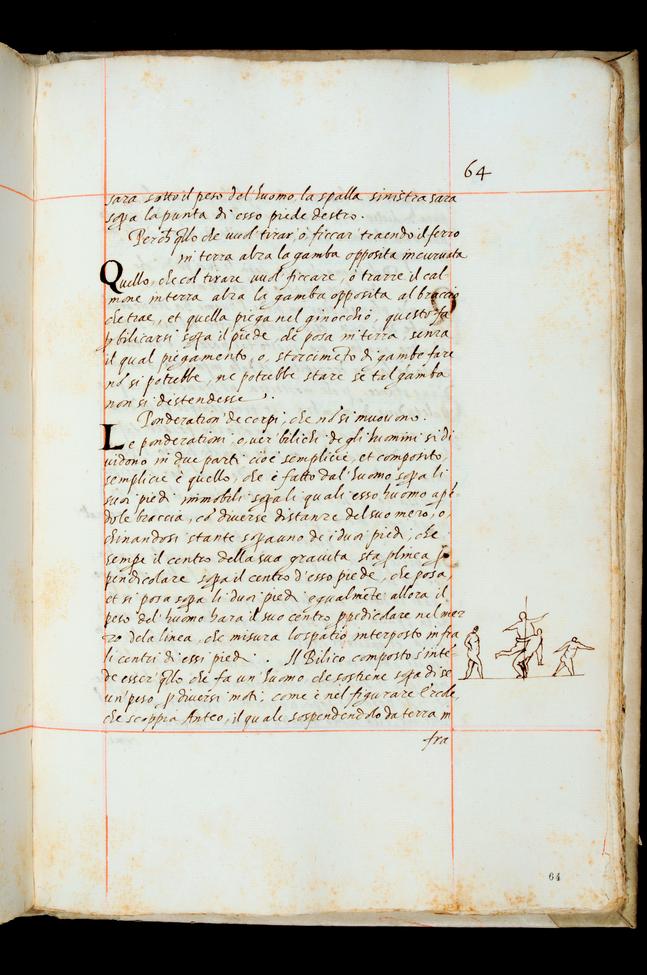 64
sara sotto il peso del'huomo, la spalla sinistra sara
sopa la punta di esso piede destro.
Perch' qllo che vuol tirar' o ficcar' traendo il ferro
in terra abra la gamba opposita incurvata
Quello, che col tirare vuol ficcare, ò trarre il cal
mone in terra abra la gamba opposita al braccio
che trae, et quella piega nel ginocchio, questo fa
p bilicarsi sopa il piede, che posa in terra, senza
il qual piegamento, o, storcimeto di gambe fare
nō si potrebbe, ne potrebbe stare se tal gamba
non si distendesse.
Ponderation' de corpi, che nō si muovono.
Le ponderationi, o, ver' bilichi de gli huomini si di
vidono in due parti cioè semplicie, et composito,
semplicie è quello, che è fatto dal' huomo sopa li
suoi piedi immobili sopa li quali esso huomo apē
do le braccia, cō diverse distanze del suo mezo, o,
chinandosi stante sopa uno de i duoi piedi, che
sempe il centro della sua gravita sta p linea p
pendicolare sopa il centro d'esso piede, che posa,
et si posa sopa li duoi piedi egualmēte allora il
peso del' huomo hara il suo centro ppēdicolare nel mez
zo de la linea, che misura lo spatio interposto infra
li centri di essi piedi. Il Bilico composto s'intē
de esser' qllo che fa un' huomo che sostiene sopa di se
un' peso p diversi moti, come è nel figurare Ercole,
che scoppia Anteo, il quale sospendendolo da terra in
fra
64